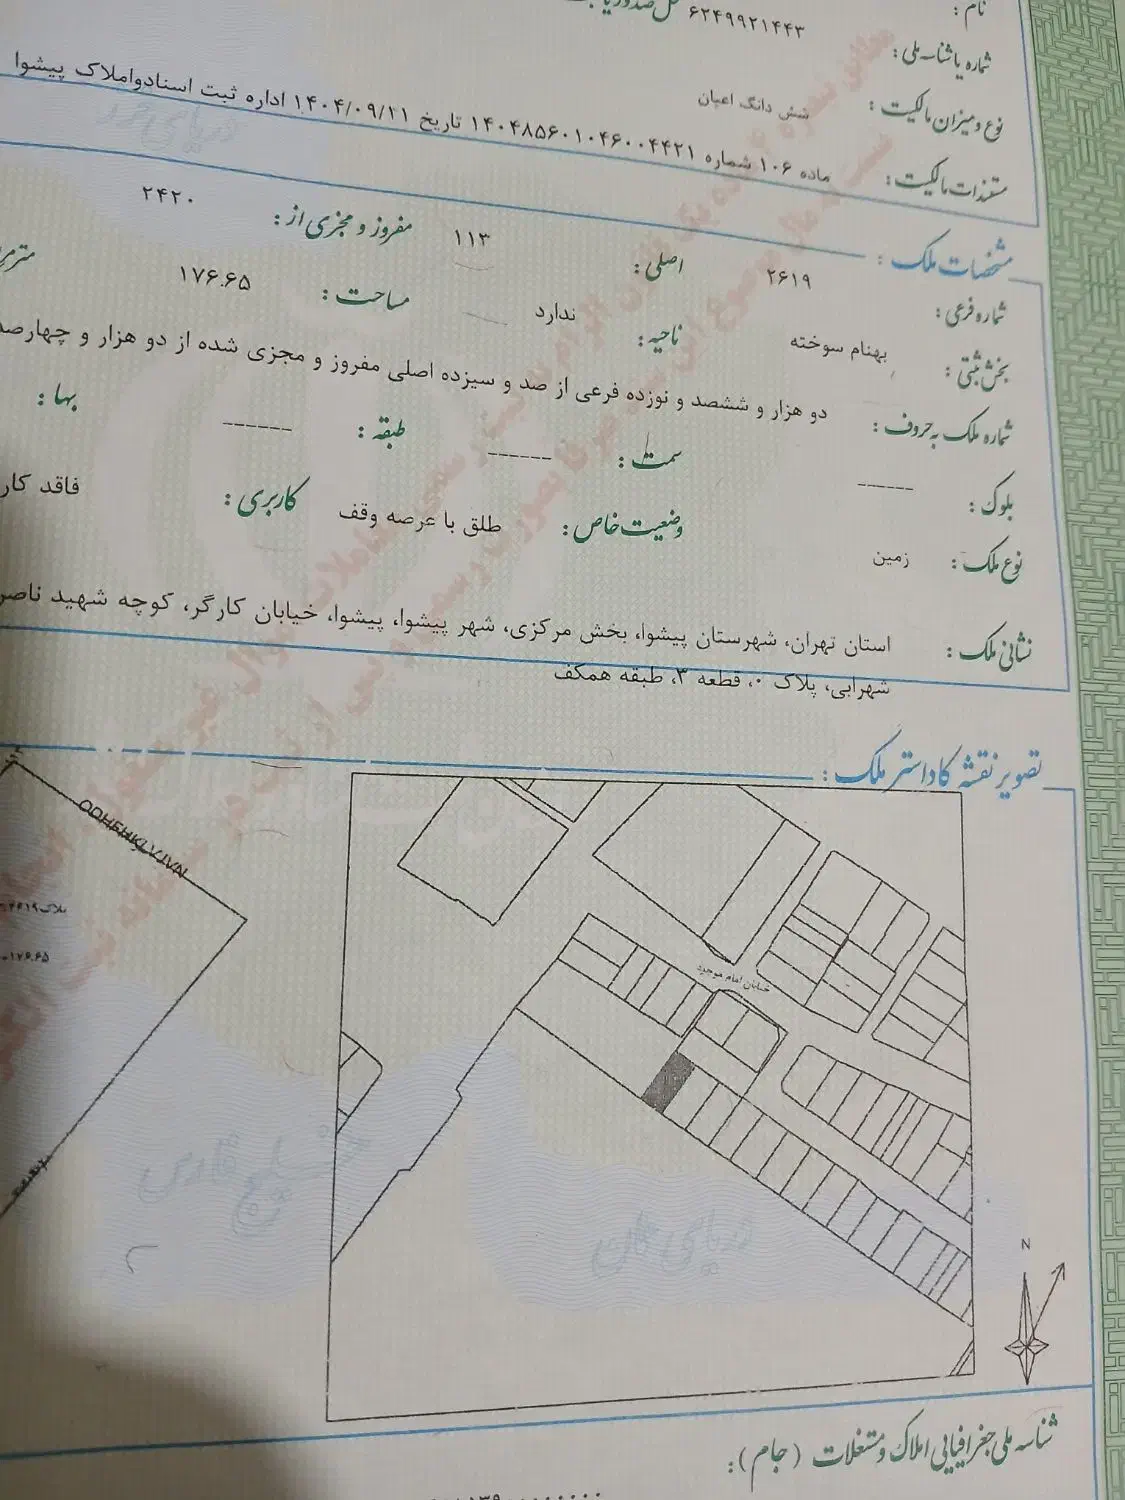 نام :
شماره یا شناسه ملی : ۶۲۴۹۹۲۱۴۴۳
نوع و میزان مالکیت : شش دانگ اعیان
مستندات مالکیت : ماده ۱۰۶ شماره ۱۴۰۴۸۵۶۰۱۰۴۶۰۰۴۴۲۱ تاریخ ۱۴۰۴/۰۹/۲۱ اداره ثبت اسنادواملاک پیشوا
مشخصات ملک :
شماره فرعی : ۲۶۱۹ اصلی : ۱۱۳ مفروز و مجزی از : ۲۴۲۰
بخش ثبتی : بهنام سوخته ناحیه : ندارد مساحت : ۱۷۶.۶۵
شماره ملک به حروف : دو هزار و ششصد و نوزده فرعی از صد و سیزده اصلی مفروز و مجزی شده از دو هزار و چهارصد
بلوک : ------ سمت : ------ طبقه : ------ بها :
نوع ملک : زمین وضعیت خاص : طلق با عرصه وقف کاربری : فاقد کار
نشانی ملک : استان تهران، شهرستان پیشوا، بخش مرکزی، شهر پیشوا، پیشوا، خیابان کارگر، کوچه شهید ناصر
شهرابی، پلاک ۰، قطعه ۳، طبقه همکف
تصویر نقشه کاداستر ملک :
خیابان امام موجود
۱۷۶.۶۵
خلیج فارس
دریای خزر
N
شناسه ملی جغرافیایی املاک و مستغلات (جام) :